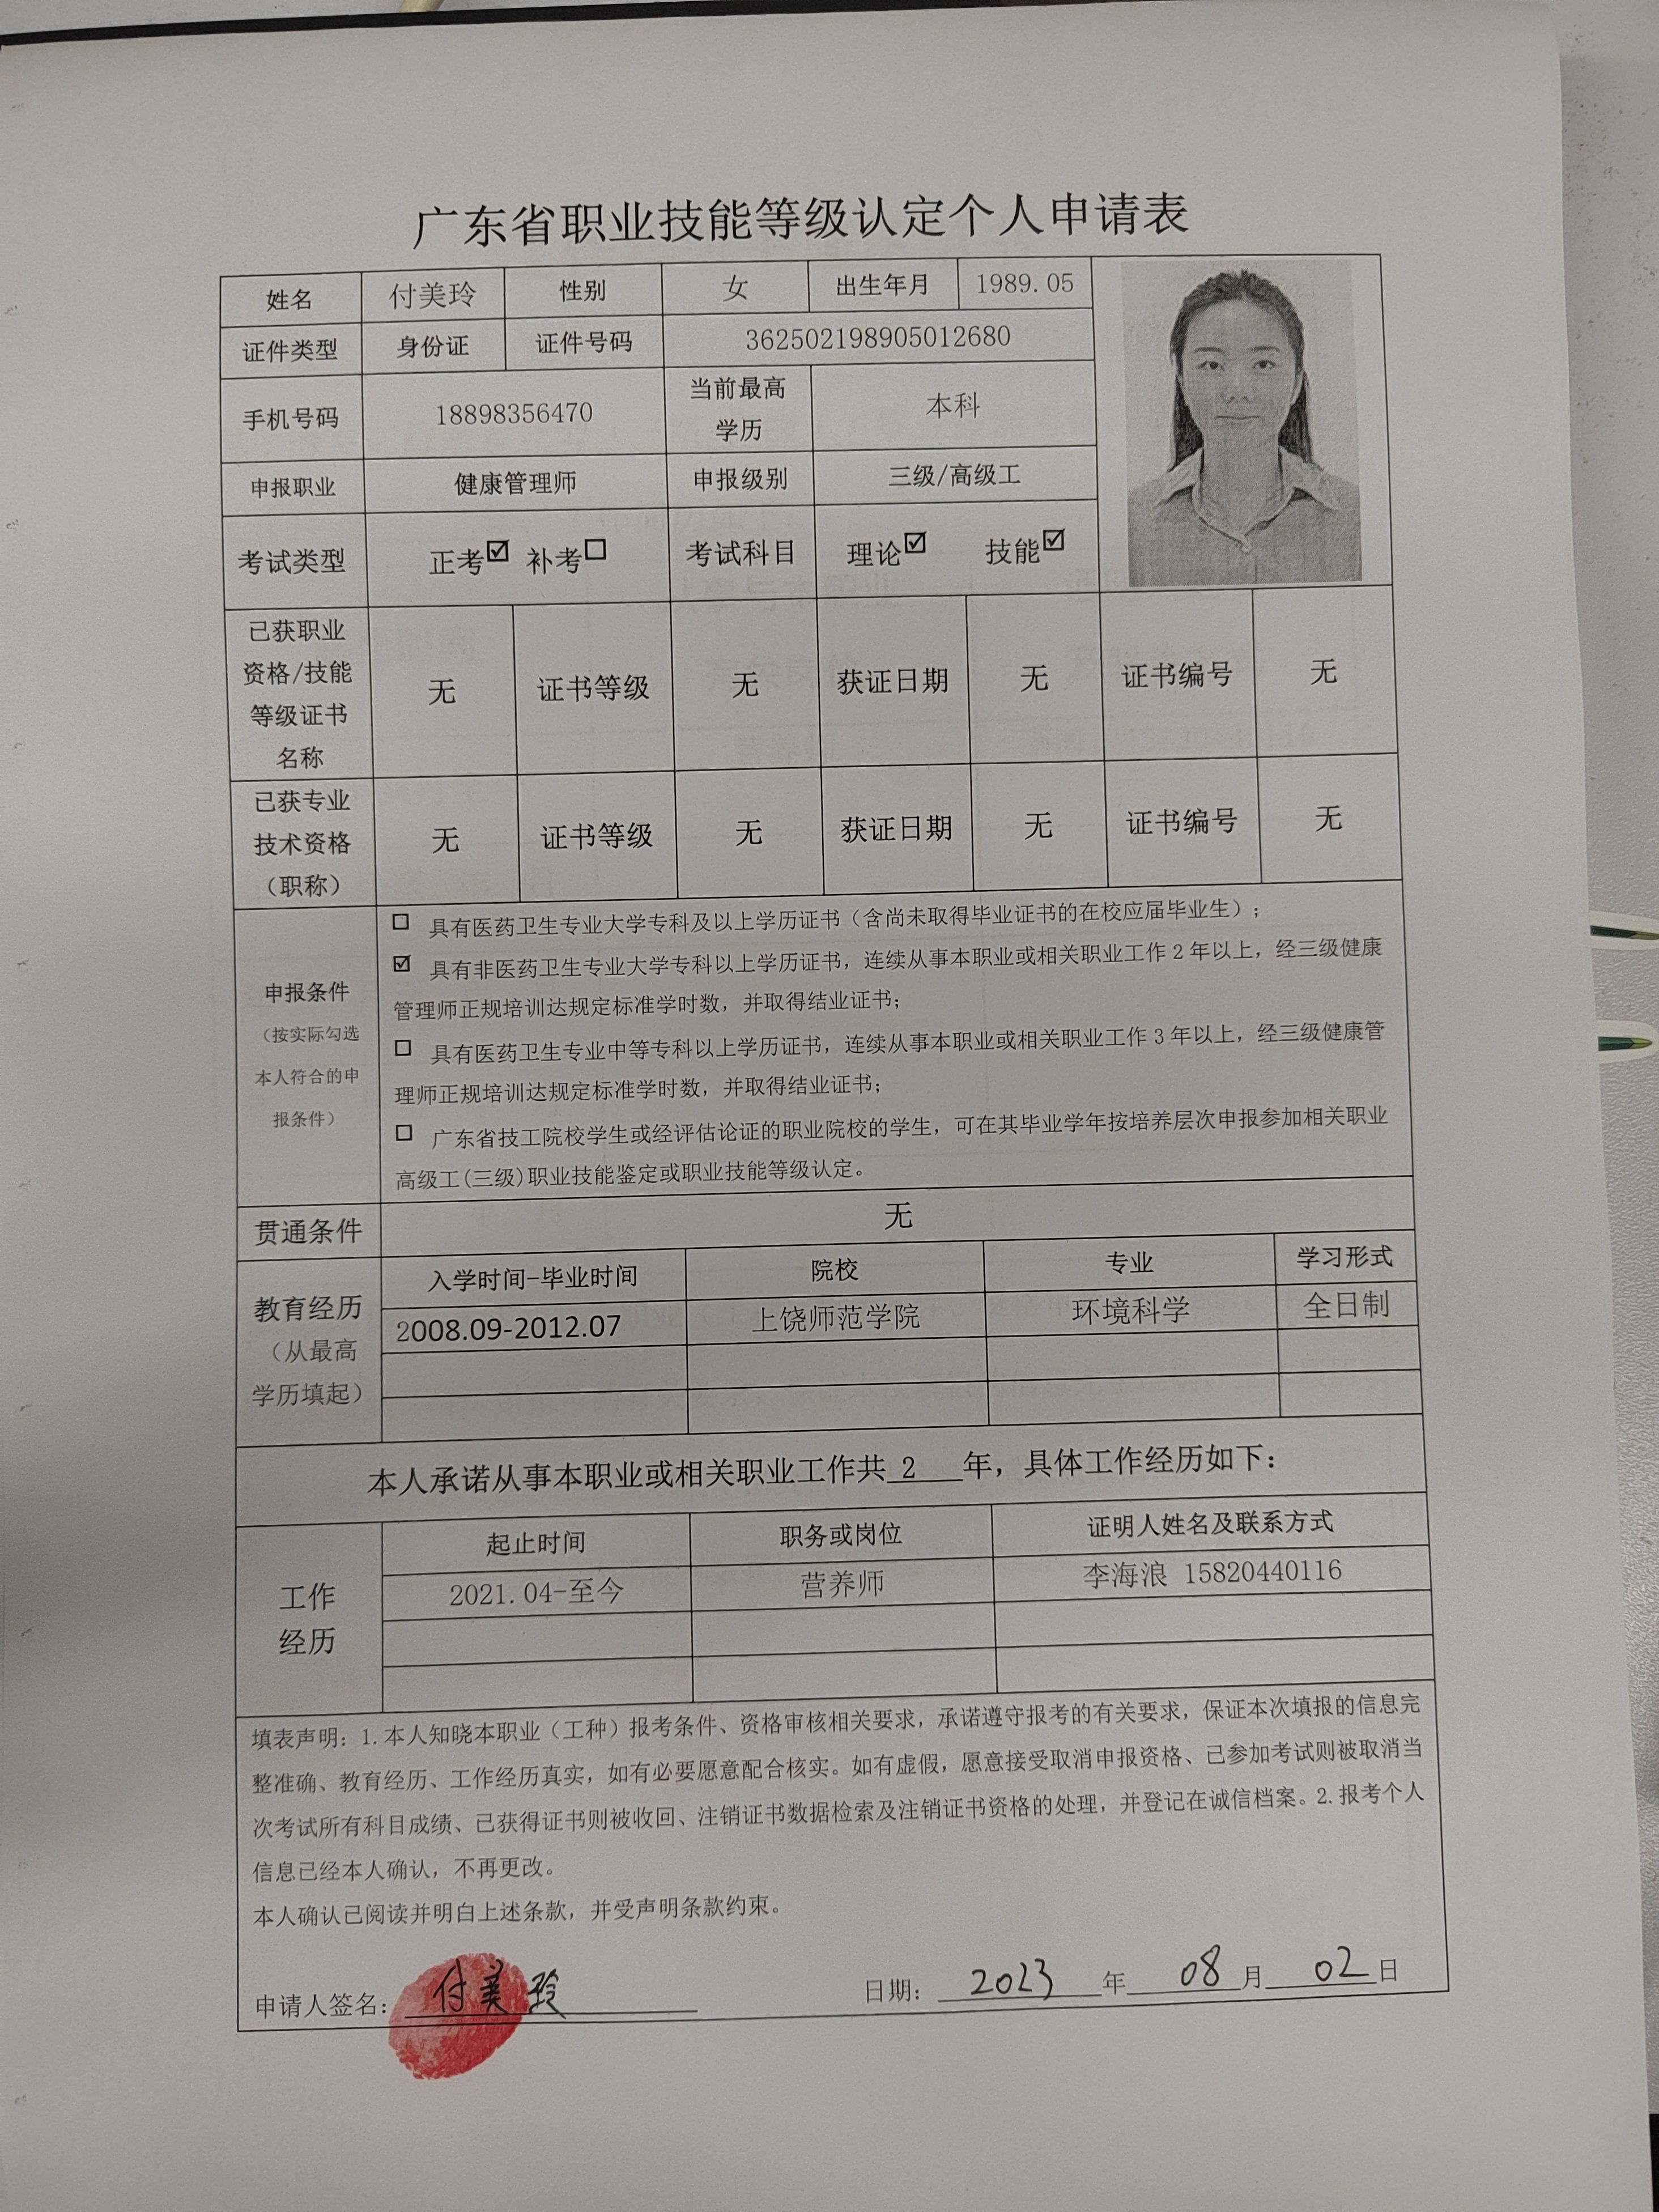 广东省职业技能等级认定个人申请表
姓名 付美玲 性别 女 出生年月 1989.05
证件类型 身份证 证件号码 362502198905012680
手机号码 18898356470 当前最高学历 本科
申报职业 健康管理师 申报级别 三级/高级工
考试类型 正考☑ 补考☐ 考试科目 理论☑ 技能☑
已获职业资格/技能等级证书名称 无 证书等级 无 获证日期 无 证书编号 无
已获专业技术资格（职称） 无 证书等级 无 获证日期 无 证书编号 无
申报条件（按实际勾选本人符合的申报条件）
☐ 具有医药卫生专业大学专科及以上学历证书（含尚未取得毕业证书的在校应届毕业生）；
☑ 具有非医药卫生专业大学专科以上学历证书，连续从事本职业或相关职业工作 2 年以上，经三级健康
管理师正规培训达规定标准学时数，并取得结业证书；
☐ 具有医药卫生专业中等专科以上学历证书，连续从事本职业或相关职业工作 3 年以上，经三级健康管
理师正规培训达规定标准学时数，并取得结业证书；
☐ 广东省技工院校学生或经评估论证的职业院校的学生，可在其毕业学年按培养层次申报参加相关职业
高级工(三级)职业技能鉴定或职业技能等级认定。
贯通条件 无
教育经历（从最高学历填起）
入学时间-毕业时间 院校 专业 学习形式
2008.09-2012.07 上饶师范学院 环境科学 全日制
本人承诺从事本职业或相关职业工作共 2 年，具体工作经历如下：
工作经历
起止时间 职务或岗位 证明人姓名及联系方式
2021.04-至今 营养师 李海浪 15820440116
填表声明：1.本人知晓本职业（工种）报考条件、资格审核相关要求，承诺遵守报考的有关要求，保证本次填报的信息完
整准确、教育经历、工作经历真实，如有必要愿意配合核实。如有虚假，愿意接受取消申报资格、已参加考试则被取消当
次考试所有科目成绩、已获得证书则被收回、注销证书数据检索及注销证书资格的处理，并登记在诚信档案。2.报考个人
信息己经本人确认，不再更改。
本人确认已阅读并明白上述条款，并受声明条款约束。
申请人签名：付美玲 日期：2023年08月02日